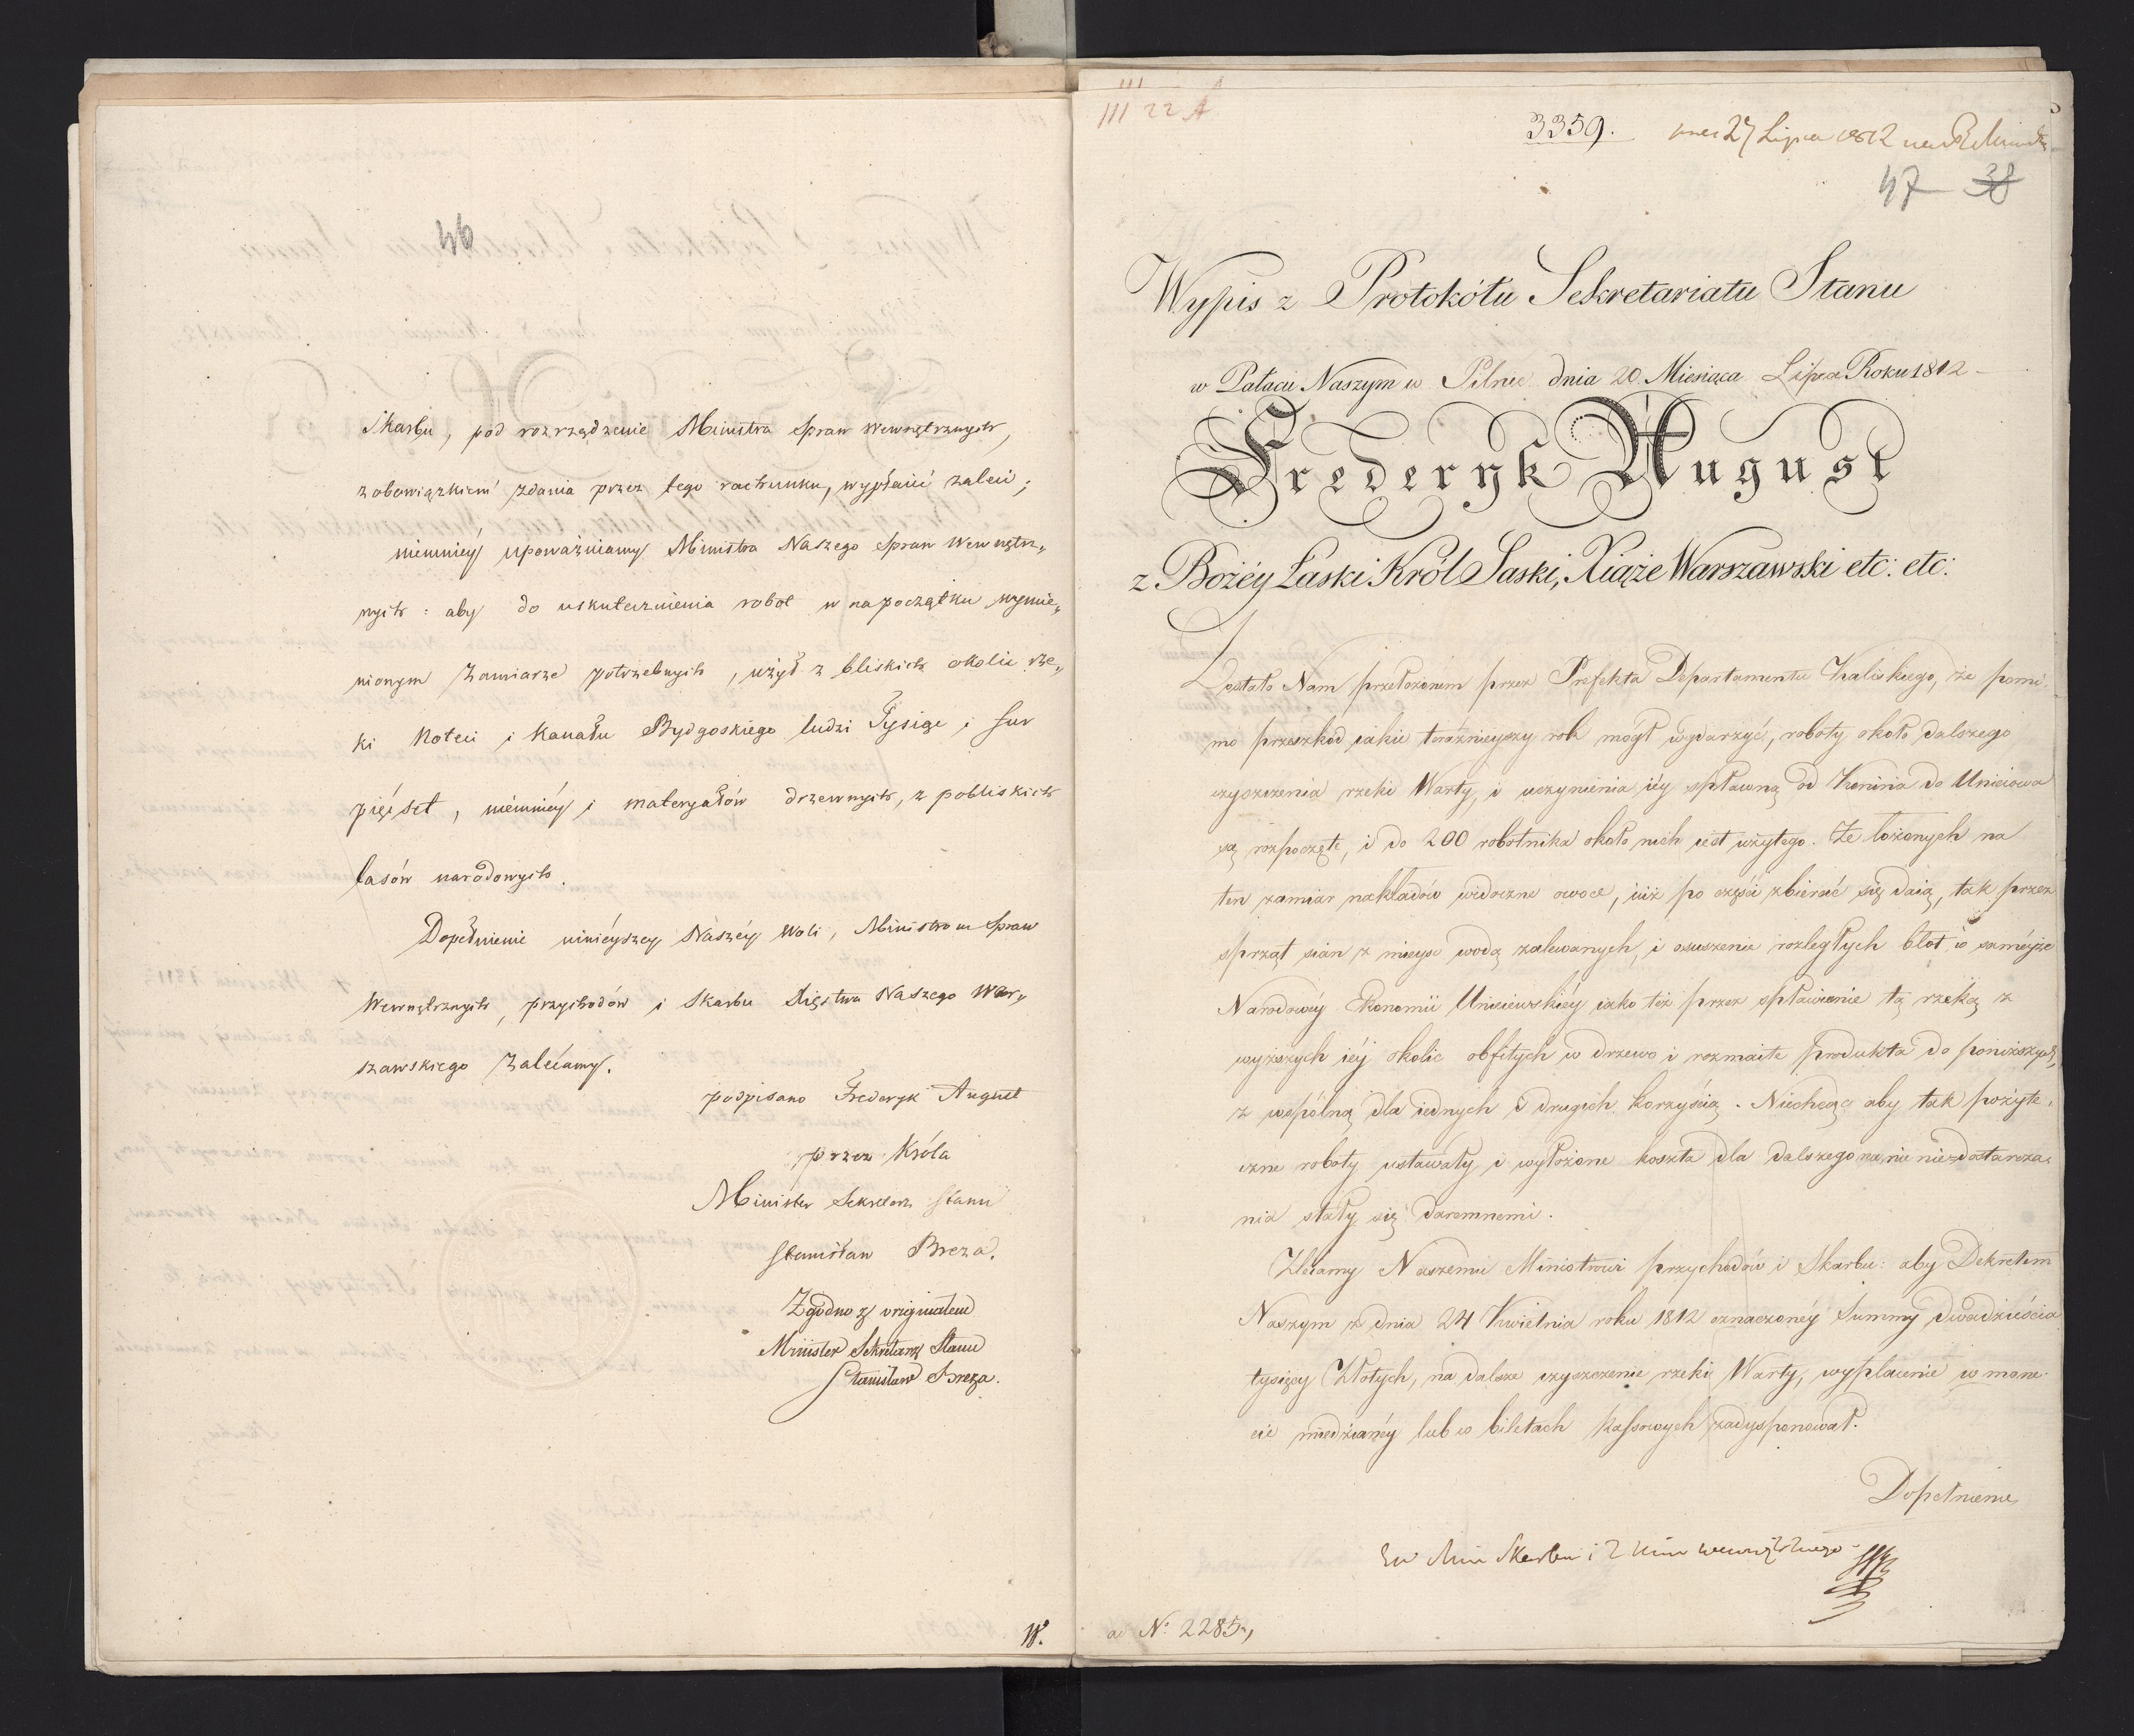 46
Skarbu, pod rozrządzenie Ministra Spraw Wewnętrznych,
z obowiązkiem zdania przez tego rachunku, wypłacić zaleci;
niemniéy upoważniamy Ministra Naszego Spraw Wewnętrz„
nych: aby do uskutecznienia robot w na początku wymie„
nionym Zamiarze potrzebnych, użył z bliskich okolic rze„
ki Noteci i Kanału Bydgoskiego ludzi Tysiąc i fur
pięćset, niemniéy i materyałów drzewnych, z pobliskich
lasów narodowych.
Dopełnienie ninieyszey Naszéy Woli, Ministrom Spraw
Wewnętrznych, przychodów i Skarbu Xięstwa Naszego War„
szawskiego Zalecamy.
podpisano Frederyk August
przez Króla
Minister Sekretarz Stanu
Stanisław Breza.
Zgodno z originałem
Minister Sekretarz Stanu
Stanisław Breza.
W.
III
III 22 A
3359. 27 Lipca 1812
47 38
Wypis z Protokółu Sekretariatu Stanu
w Pałacu Naszym w Pilnic dnia 20 Miesiąca Lipca Roku 1812
Frederyk August
z Bożéy Łaski Król Saski, Xiąże Warszawski etc: etc:
Zostało Nam przełożonem przez Prefekta Departamentu Kaliskiego, że pomi„
mo przeszkod iakie teraźnieyszy rok mógł wydarzyć, roboty około dalszego
czyszczenia rzeki Warty, i uczynienia iéy spławną od Konina do Uniciowa
są rozpoczęte, i do 200 robotnika około nich iest użytego. Że łożonych na
ten zamiar nakładów widoczne owoce, iuż po części zbierać się daią, tak przez
sprząt sian z mieysc wodą zalewanych, i osuszenie rozległych błot w saméyże
Narodowéy Ekonomii Uniciewskiéy iako też przez spławienie tą rzeką z
wyższych iéy okolic obfitych w drzewo i rozmaite produkta do poniższych,
z wspólną dla iednych i drugich korzyścią. Niechcąc aby tak pożyte„
czne roboty ustawały i wyłożone koszta dla dalszego na nie niedostarcza„
nia stały się daremnemi.
Zlecamy Naszemu Ministrowi przychodów i Skarbu: aby Dekretem
Naszym z dnia 24 Kwietnia roku 1812 oznaczonéy Summy dwadzieścia
tysięcy Złotych, na dalsze czyszczenie rzeki Warty, wypłacenie w mone„
cie miedzianéy lub w biletach kassowych zadysponował.
Dopełnienie
Min Skarbu i wewnętrznego
ad No. 2285,